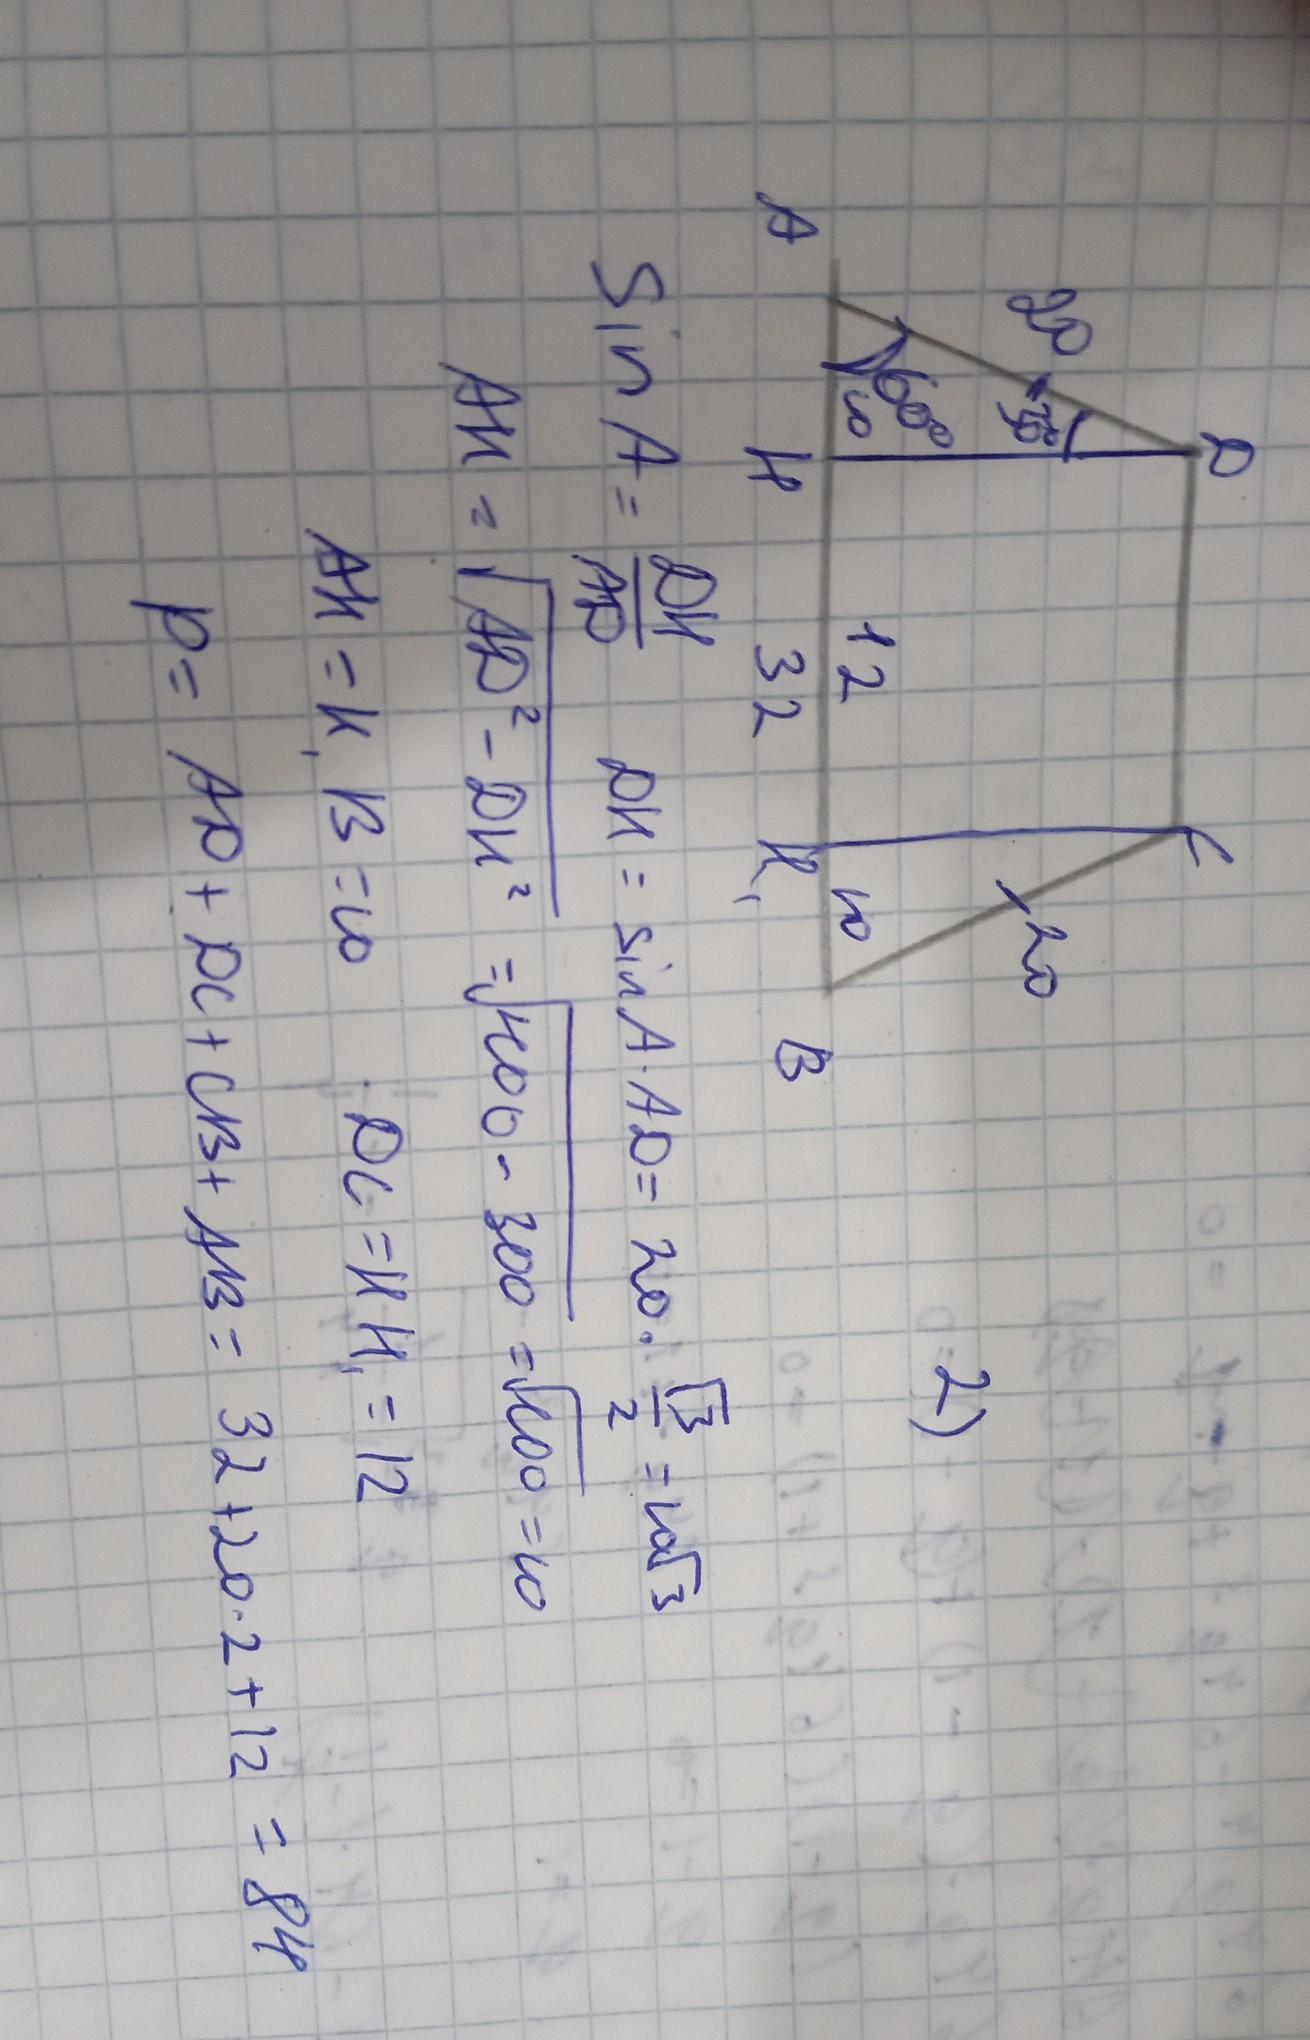 2)
D C
20 30° 20
60°
10 12 10
A H 32 H₁ B
Sin A = DH/AD DH = sin A · AD = 20 · √3/2 = 10√3
AH = √(AD² - DH²) = √(400 - 300) = √100 = 10
AH = H₁B = 10 DC = HH₁ = 12
p = AD + DC + CB + AB = 32 + 20 · 2 + 12 = 84